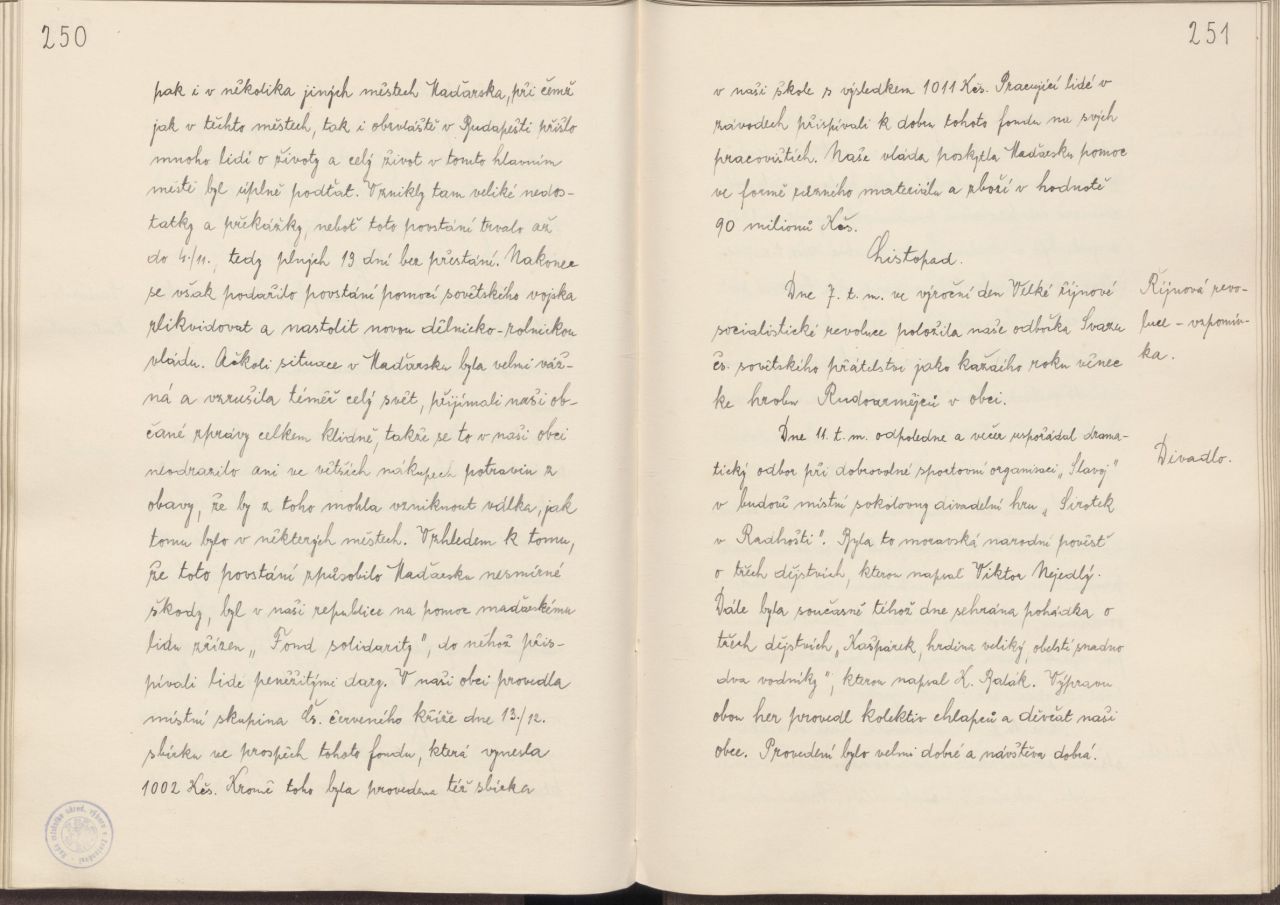 250
pak i v několika jiných městech Maďarska, při čemž
jak v těchto městech, tak i obzvláště v Budapešti přišlo
mnoho lidí o životy a celý život v tomto hlavním
městě byl úplně podťat. Vznikly tam veliké nedos-
tatky a překážky, neboť toto povstání trvalo až
do 4./11., tedy plných 13 dní bez přestání. Nakonec
se však podařilo povstání pomocí sovětského vojska
zlikvidovat a nastolit novou dělnicko-rolnickou
vládu. Ačkoli situace v Maďarsku byla velmi váž-
ná a vzrušila téměř celý svět, přijímali naši ob-
čané zprávy celkem klidně, takže se to v naší obci
neodrazilo ani ve větších nákupech potravin z
obavy, že by z toho mohla vzniknout válka, jak
tomu bylo v některých městech. Vzhledem k tomu,
že toto povstání způsobilo Maďarsku nesmírné
škody, byl v naší republice na pomoc maďarskému
lidu zřízen „Fond solidarity", do něhož přis-
pívali lidé peněžitými dary. V naší obci provedla
místní skupina Čs. červeného kříže dne 13./12.
sbírku ve prospěch tohoto fondu, která vynesla
1002 Kčs. Kromě toho byla provedena též sbírka
251
v naší škole s výsledkem 1011 Kčs. Pracující lidé v
závodech přispívali k dobru tohoto fondu na svých
pracovištích. Naše vláda poskytla Maďarsku pomoc
ve formě různého materiálu a zboží v hodnotě
90 milionů Kčs.
Listopad.
Dne 7. t. m. ve výroční den Velké říjnové
socialistické revoluce položila naše odbočka Svazu
čs. sovětského přátelství jako každého roku věnec
ke hrobu Rudoarmějců v obci.
Říjnová revo-
luce - vzpomín-
ka.
Dne 11. t. m. odpoledne a večer uspořádal drama-
tický odbor při dobrovolné sportovní organisaci „Slavoj"
v budově místní sokolovny divadelní hru „Sirotek
v Radhošti". Byla to moravská narodní pověst
o třech dějstvích, kterou napsal Viktor Nejedlý.
Dále byla současně téhož dne sehrána pohádka o
třech dějstvích „Kašpárek, hrdina veliký, obelstí snadno
dva vodníky", kterou napsal K. Balák. Výpravu
obou her provedl kolektiv chlapců a děvčat naší
obce. Provedení bylo velmi dobré a návštěva dobrá.
Divadlo.